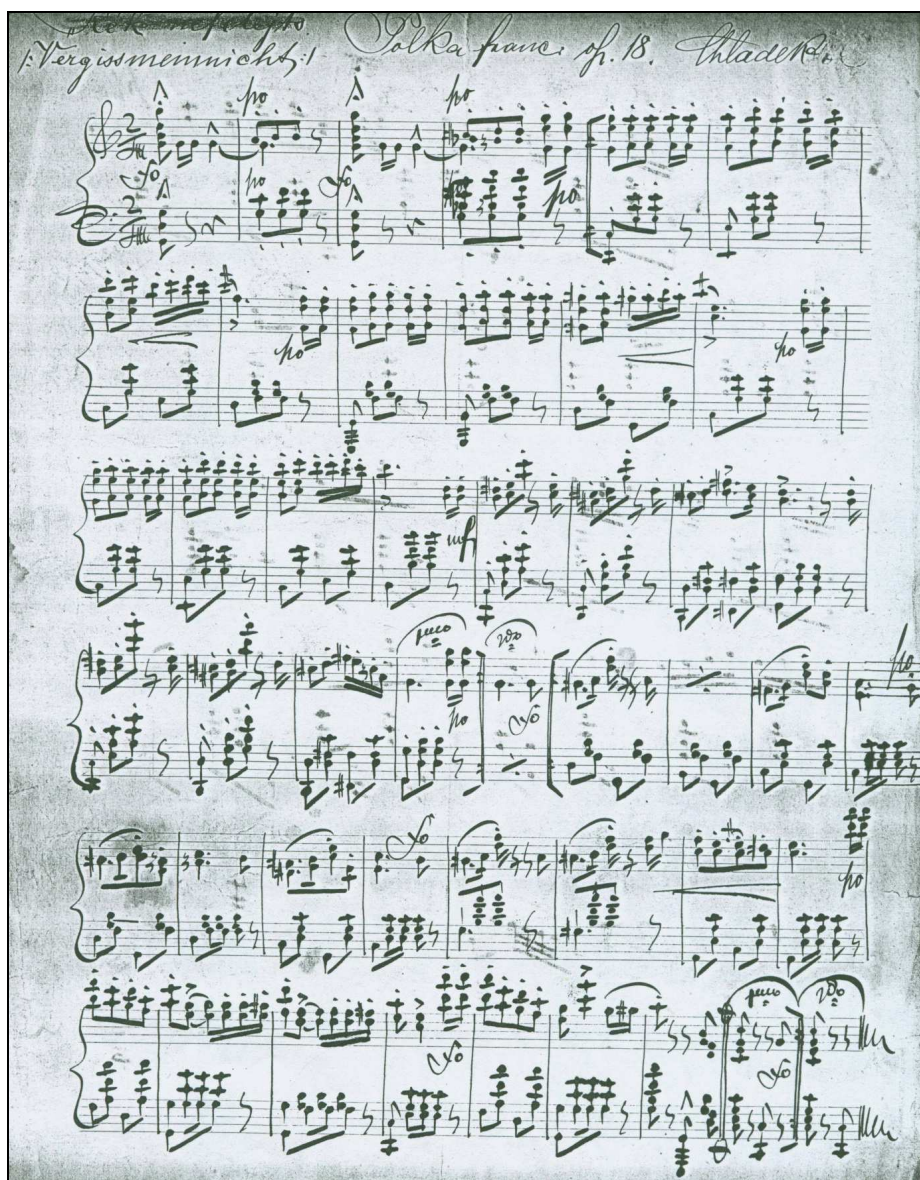 /:Vergissmeinnicht:/ Polka franc. op. 18. Chladek
po po
fo po fo po
po po
mf
pmo 2do
po fo po
fo po
pmo 2do
fo fo